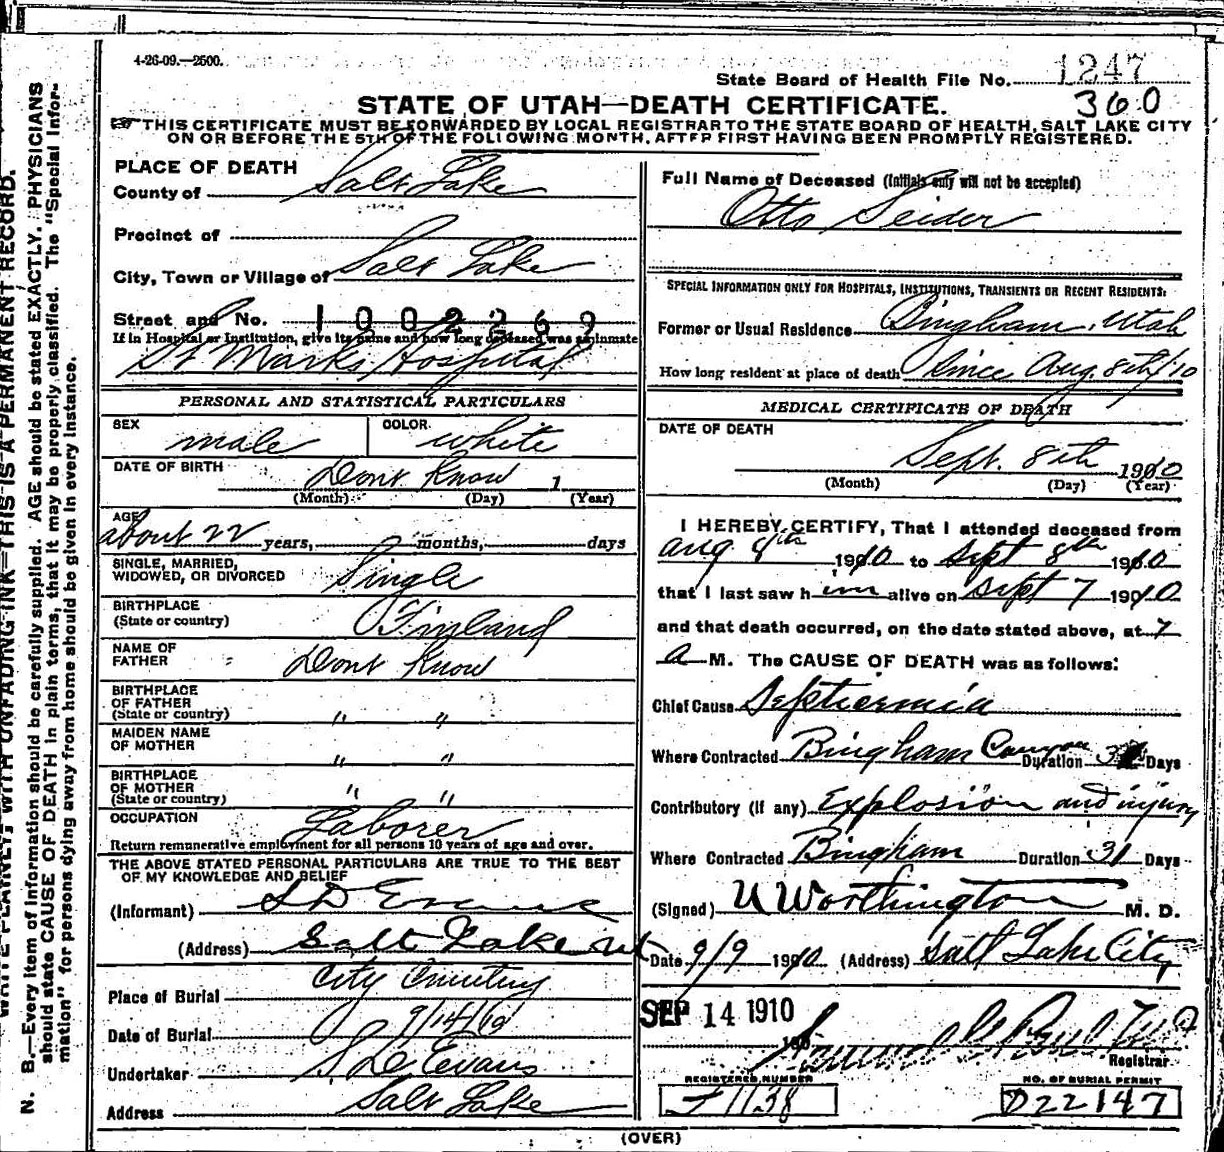 4-26-09.—2500.
State Board of Health File No. 1247
360
STATE OF UTAH—DEATH CERTIFICATE.
THIS CERTIFICATE MUST BE FORWARDED BY LOCAL REGISTRAR TO THE STATE BOARD OF HEALTH, SALT LAKE CITY
ON OR BEFORE THE 5TH OF THE FOLLOWING MONTH, AFTER FIRST HAVING BEEN PROMPTLY REGISTERED.
PLACE OF DEATH
County of Salt Lake
Precinct of
City, Town or Village of Salt Lake
Street and No. 1002269
If in Hospital or Institution, give its name and how long deceased was an inmate
St Marks Hospital
PERSONAL AND STATISTICAL PARTICULARS
SEX male COLOR white
DATE OF BIRTH Dont Know 1
(Month) (Day) (Year)
AGE about 22 years, months, days
SINGLE, MARRIED,
WIDOWED, OR DIVORCED Single
BIRTHPLACE
(State or country) Finland
NAME OF
FATHER Dont Know
BIRTHPLACE
OF FATHER
(State or country) " "
MAIDEN NAME
OF MOTHER " "
BIRTHPLACE
OF MOTHER
(State or country) " "
OCCUPATION Laborer
Return remunerative employment for all persons 10 years of age and over.
THE ABOVE STATED PERSONAL PARTICULARS ARE TRUE TO THE BEST
OF MY KNOWLEDGE AND BELIEF
(Informant) S D Evans
(Address) Salt Lake Ut
Place of Burial City Cemetery
Date of Burial 9/14/10
Undertaker S D Evans
Address Salt Lake
Full Name of Deceased (Initials only will not be accepted)
Otto Seider
SPECIAL INFORMATION ONLY FOR HOSPITALS, INSTITUTIONS, TRANSIENTS OR RECENT RESIDENTS:
Former or Usual Residence Bingham, Utah
How long resident at place of death Since Aug. 8th/10
MEDICAL CERTIFICATE OF DEATH
DATE OF DEATH
Sept. 8th 1910
(Month) (Day) (Year)
I HEREBY CERTIFY, That I attended deceased from
Aug 8th 1910 to Sept 8th 1910
that I last saw him alive on Sept 7 1910
and that death occurred, on the date stated above, at 7
a M. The CAUSE OF DEATH was as follows:
Chief Cause Septicemia
Where Contracted Bingham Canyon Duration Days
Contributory (if any) Explosion and injury
Where Contracted Bingham Duration 31 Days
(Signed) U Worthington M. D.
Date 9/9 1910 (Address) Salt Lake City
SEP 14 1910
190
Registrar
REGISTERED NUMBER
1138
NO. OF BURIAL PERMIT
D22147
(OVER)
WRITE PLAINLY, WITH UNFADING INK—THIS IS A PERMANENT RECORD.
N. B.—Every item of information should be carefully supplied. AGE should be stated EXACTLY. PHYSICIANS
should state CAUSE OF DEATH in plain terms, that it may be properly classified. The "Special Infor-
mation" for persons dying away from home should be given in every instance.